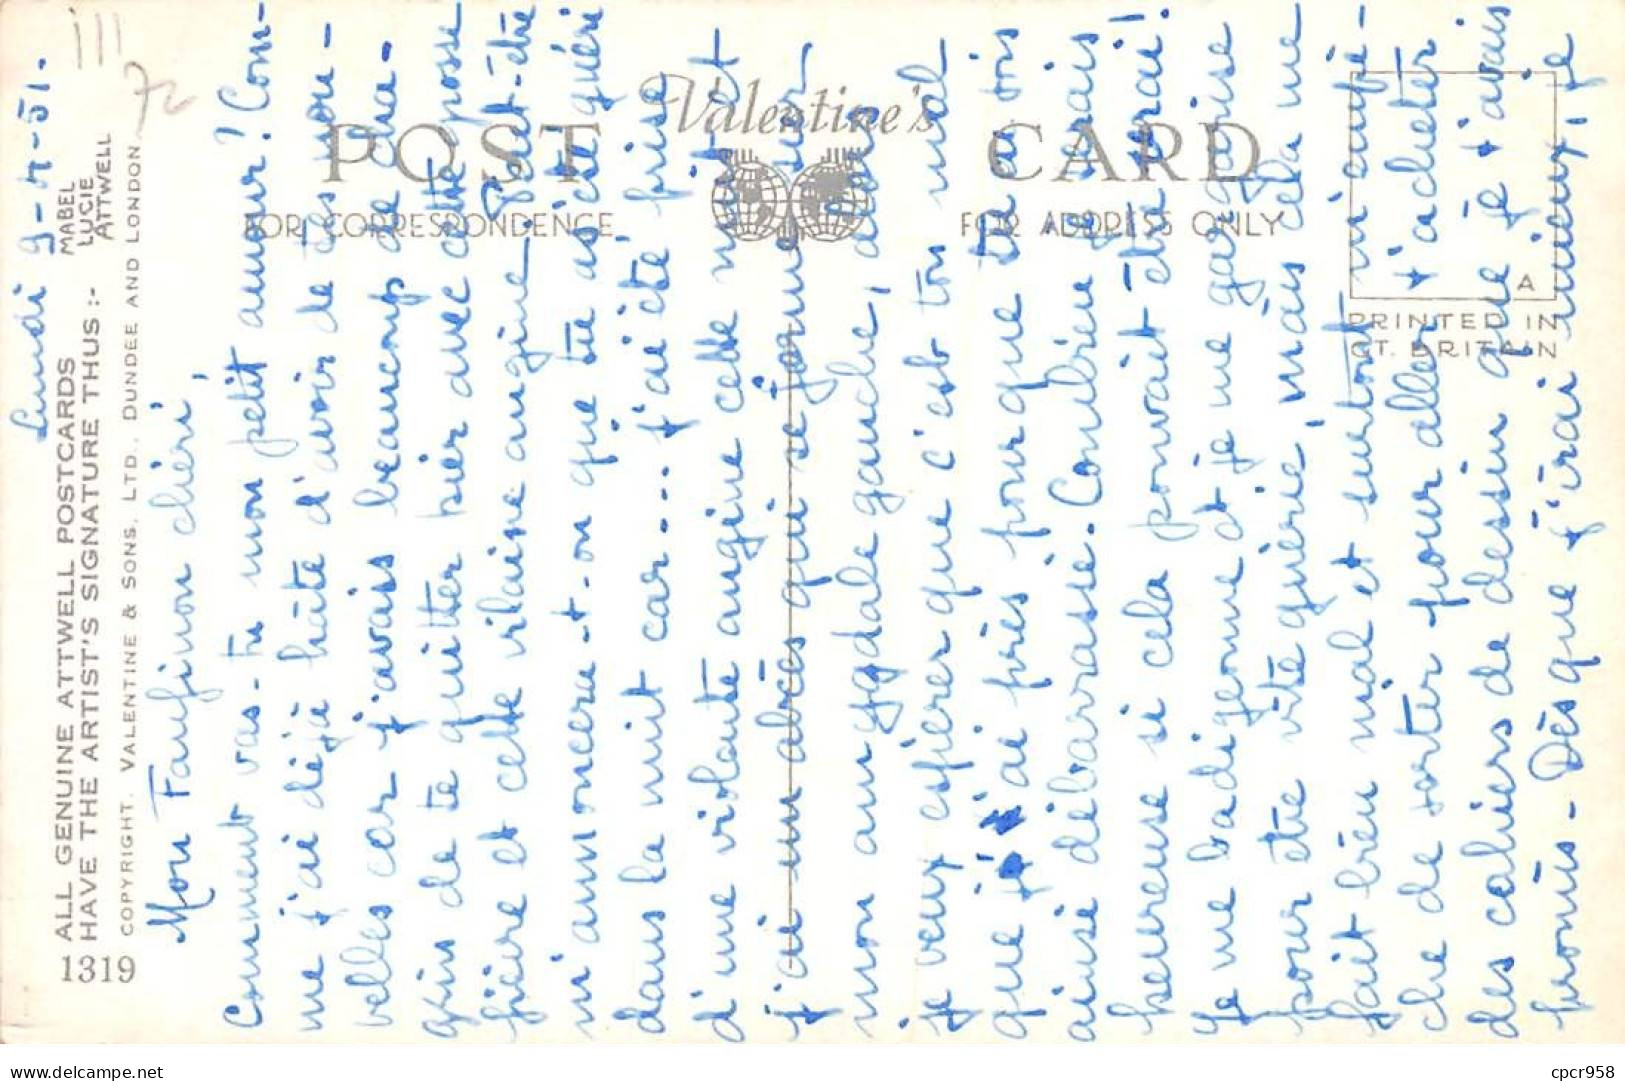 Lundi 9-4-51.
Mon Fanfinon chéri,
Comment vas-tu mon petit amour? Com-
me j'ai déjà hâte d'avoir de tes nou-
velles car j'avais beaucoup de cha-
grin de te quitter hier avec cette grosse
fièvre et cette vilaine angine. Peut-être
m'annoncera-t-on que tu as été guéri
dans la nuit car... j'ai été prise
d'une violente angine cette nuit et
j'ai un abcès qui se forme sur
mon amygdale gauche, alors
je veux espérer que c'est ton mal
que j'ai pris pour que tu en sois
ainsi débarrassé. Combien je serais
heureuse si cela pouvait être vrai!
Je me badigeonne et je me gargarise
pour être vite guérie, mais cela me
fait bien mal et surtout m'empê-
che de sortir pour aller t'acheter
des cahiers de dessin que je t'avais
promis. Dès que j'irai mieux, je
ALL GENUINE ATTWELL POSTCARDS
HAVE THE ARTIST'S SIGNATURE THUS :-
MABEL
LUCIE
ATTWELL
1319
COPYRIGHT. VALENTINE & SONS. LTD., DUNDEE AND LONDON.
72
Valentine's
POST CARD
FOR CORRESPONDENCE
FOR ADDRESS ONLY
A
PRINTED IN
GT. BRITAIN
delcampe.net
cpcr958